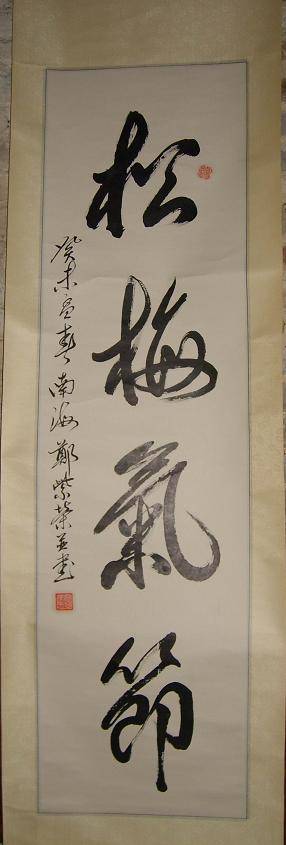 松梅氣節
癸未孟春南海鄭紫荣並書